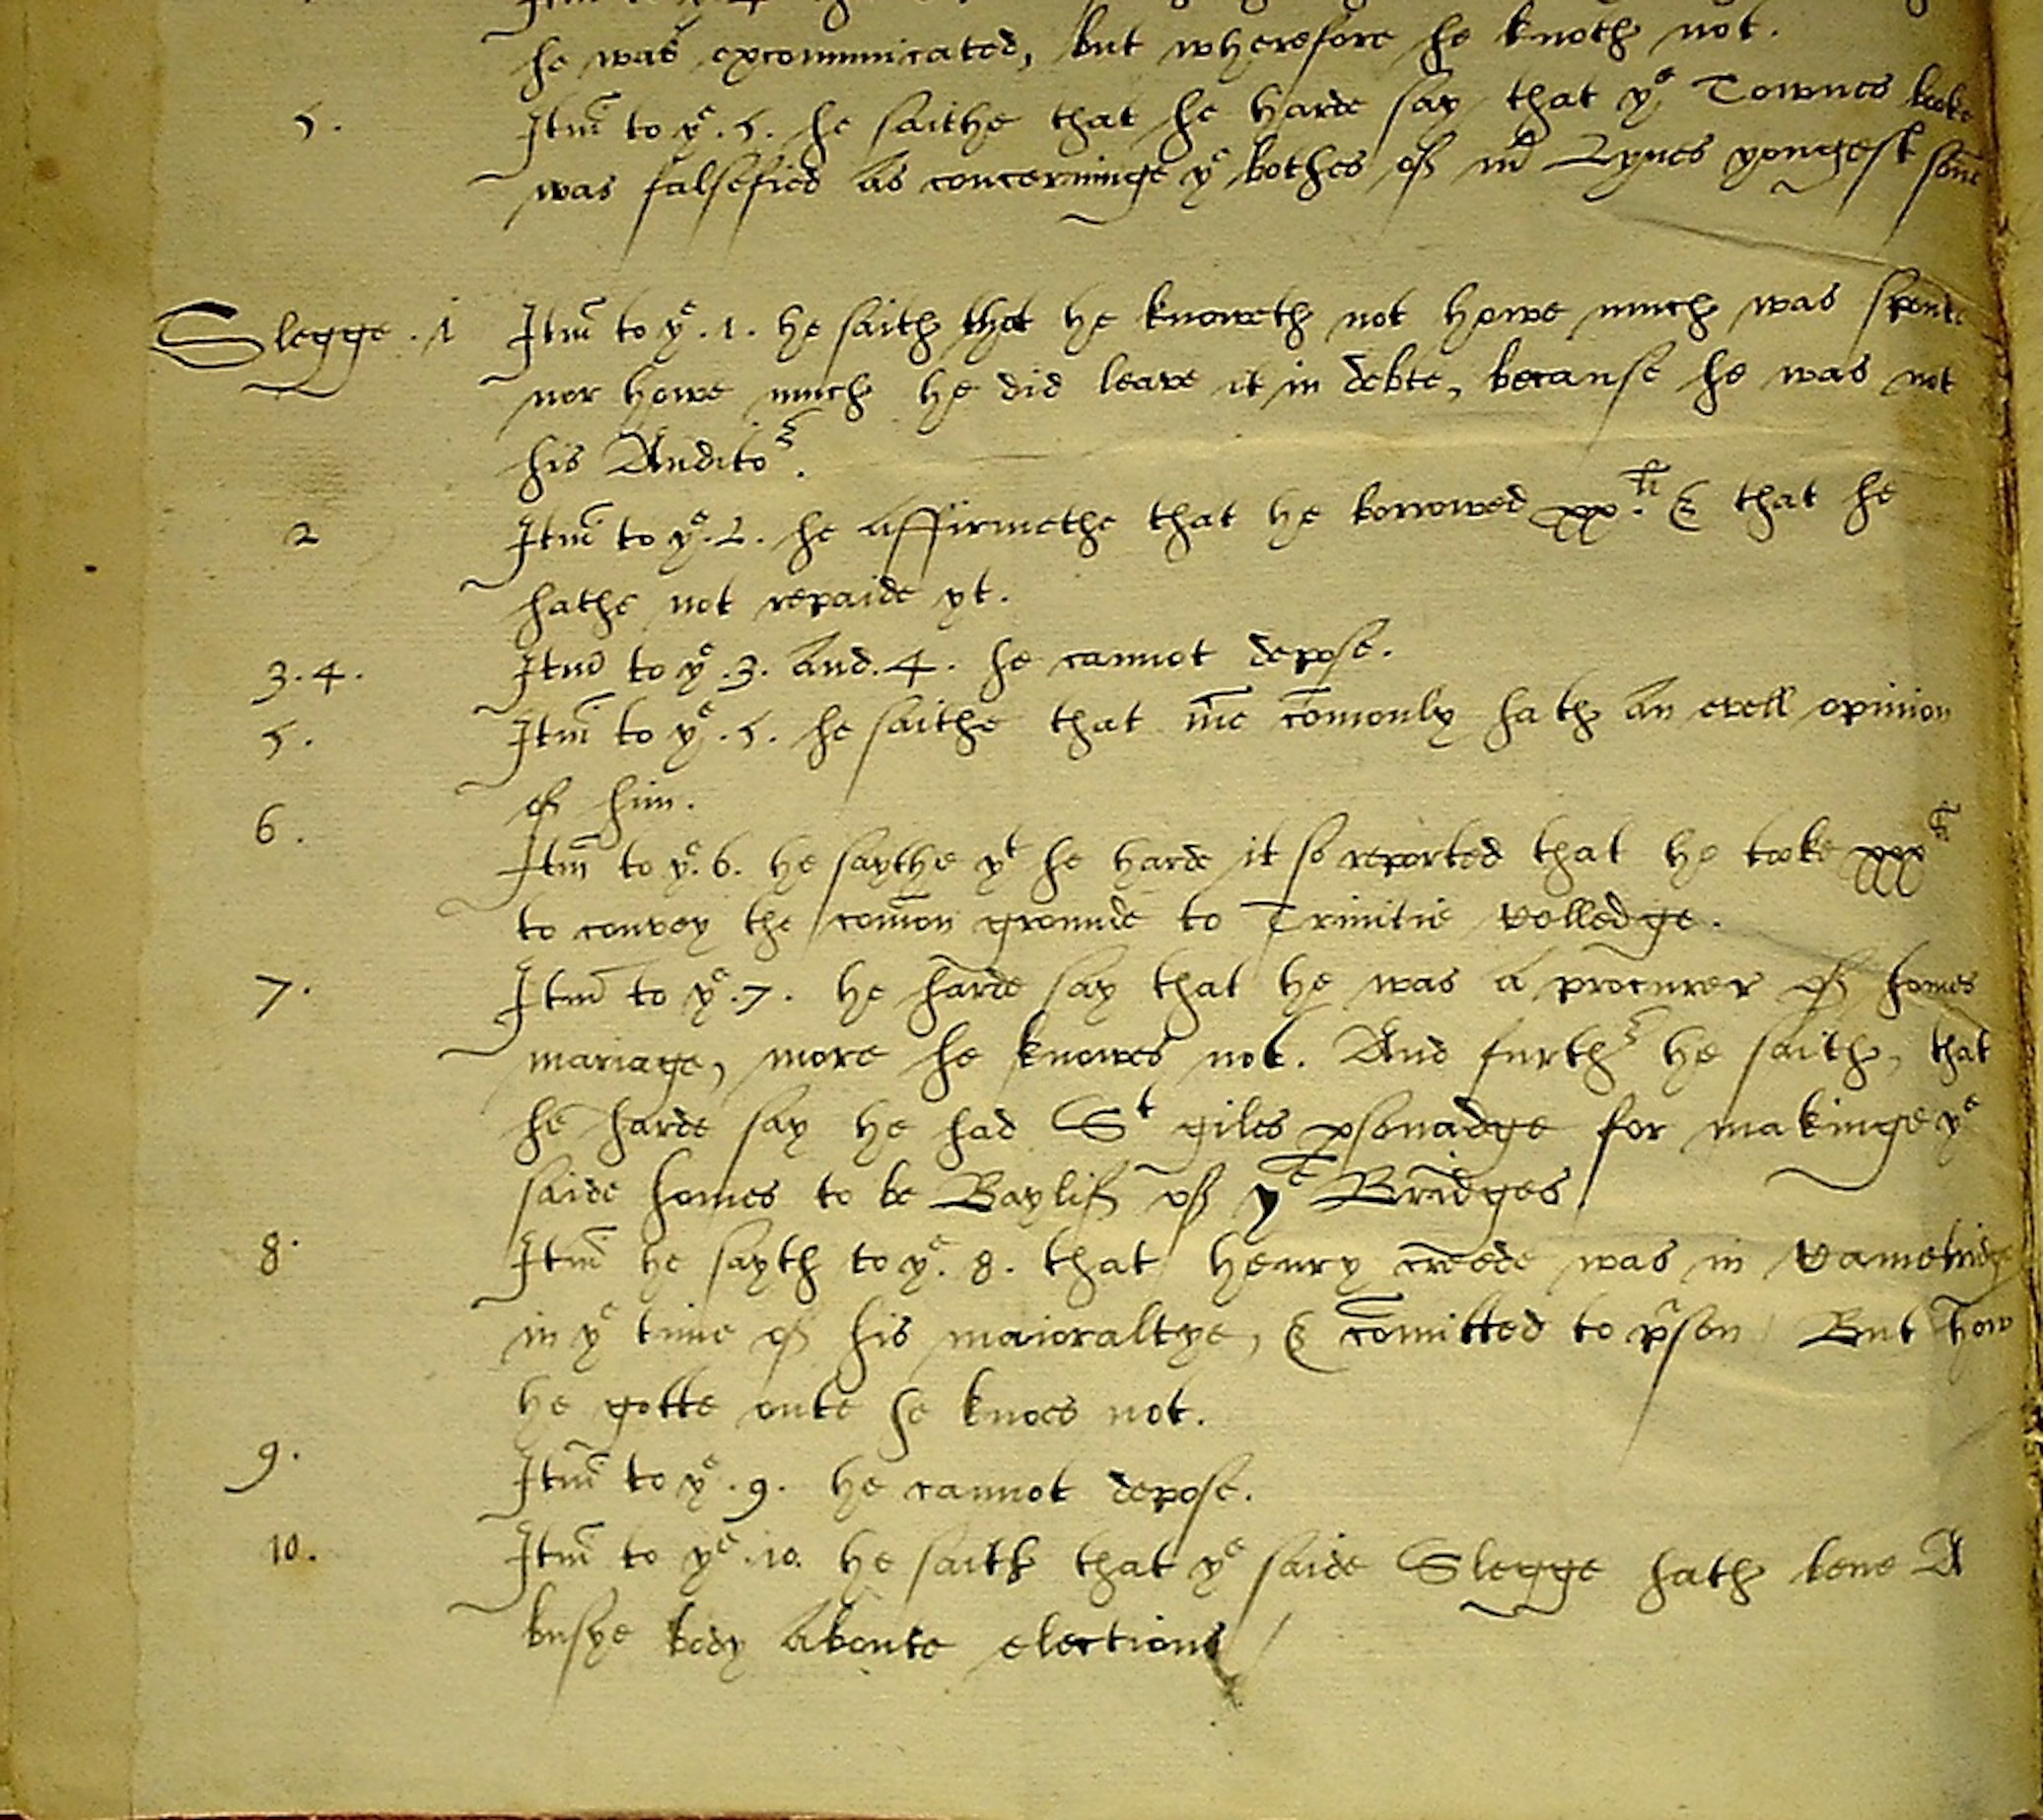 he was excommunicated, but wherefore he knoth not.
5. Itm̄ to yᵉ .5. he saithe that he harde say that yᵉ Townes booke
was falsefied as concerninge yᵉ bothes of mʳ Lynes yongest sone
Slegge .1 Itm̄ to yᵉ .1. he saith that he knoweth not howe much was spente
nor howe much he did leave it in debte, because he was not
his Auditoʳ.
2 Itm̄ to yᵉ .2. he affirmethe that he borrowed xxˡⁱ. & that he
hathe not repaide yt.
3.4. Itm̄ to yᵉ .3. and .4. he cannot depose.
5. Itm̄ to yᵉ .5. he saithe that mē cōmonly hath an evell opinion
of him.
6. Itm̄ to yᵉ .6. he saythe yᵗ he harde it so reported that he tooke xxxˡⁱ
to convey the com̄on grounde to Trinitie Colledge.
7. Itm̄ to yᵉ .7. he harde say that he was a procurer of homes
mariage, more he knowes not. And furthʳ he saith, that
he harde say he had Sᵗ giles psonadge for makinge yᵉ
saide homes to be Baylif of yᵉ Bridges
8. Itm̄ he sayth to yᵉ .8. that Henry creede was in Cambridge
in yᵉ time of his maioraltye, & cōmitted to pʳson But how
he gotte oute he knoes not.
9. Itm̄ to yᵉ .9. he cannot depose.
10. Itm̄ to yᵉ .10. he saith that yᵉ saide Slegge hath bene A
busye body aboute elections